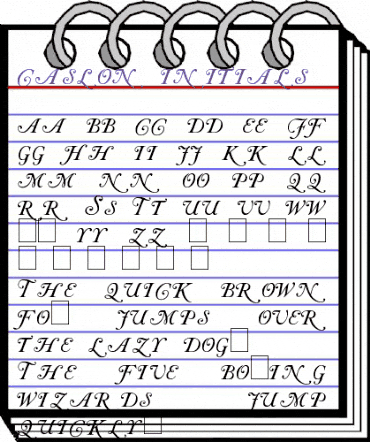 CASLON INITIALS
AA BB CC DD EE FF
GG HH II JJ KK LL
MM NN OO PP QQ
RR SS TT UU VV WW
□□ YY ZZ □ □ □ □
□ □ □ □ □ □
THE QUICK BROWN
FO□ JUMPS OVER
THE LAZY DOG□
THE FIVE BO□ING
WIZARDS JUMP
QUICKLY□